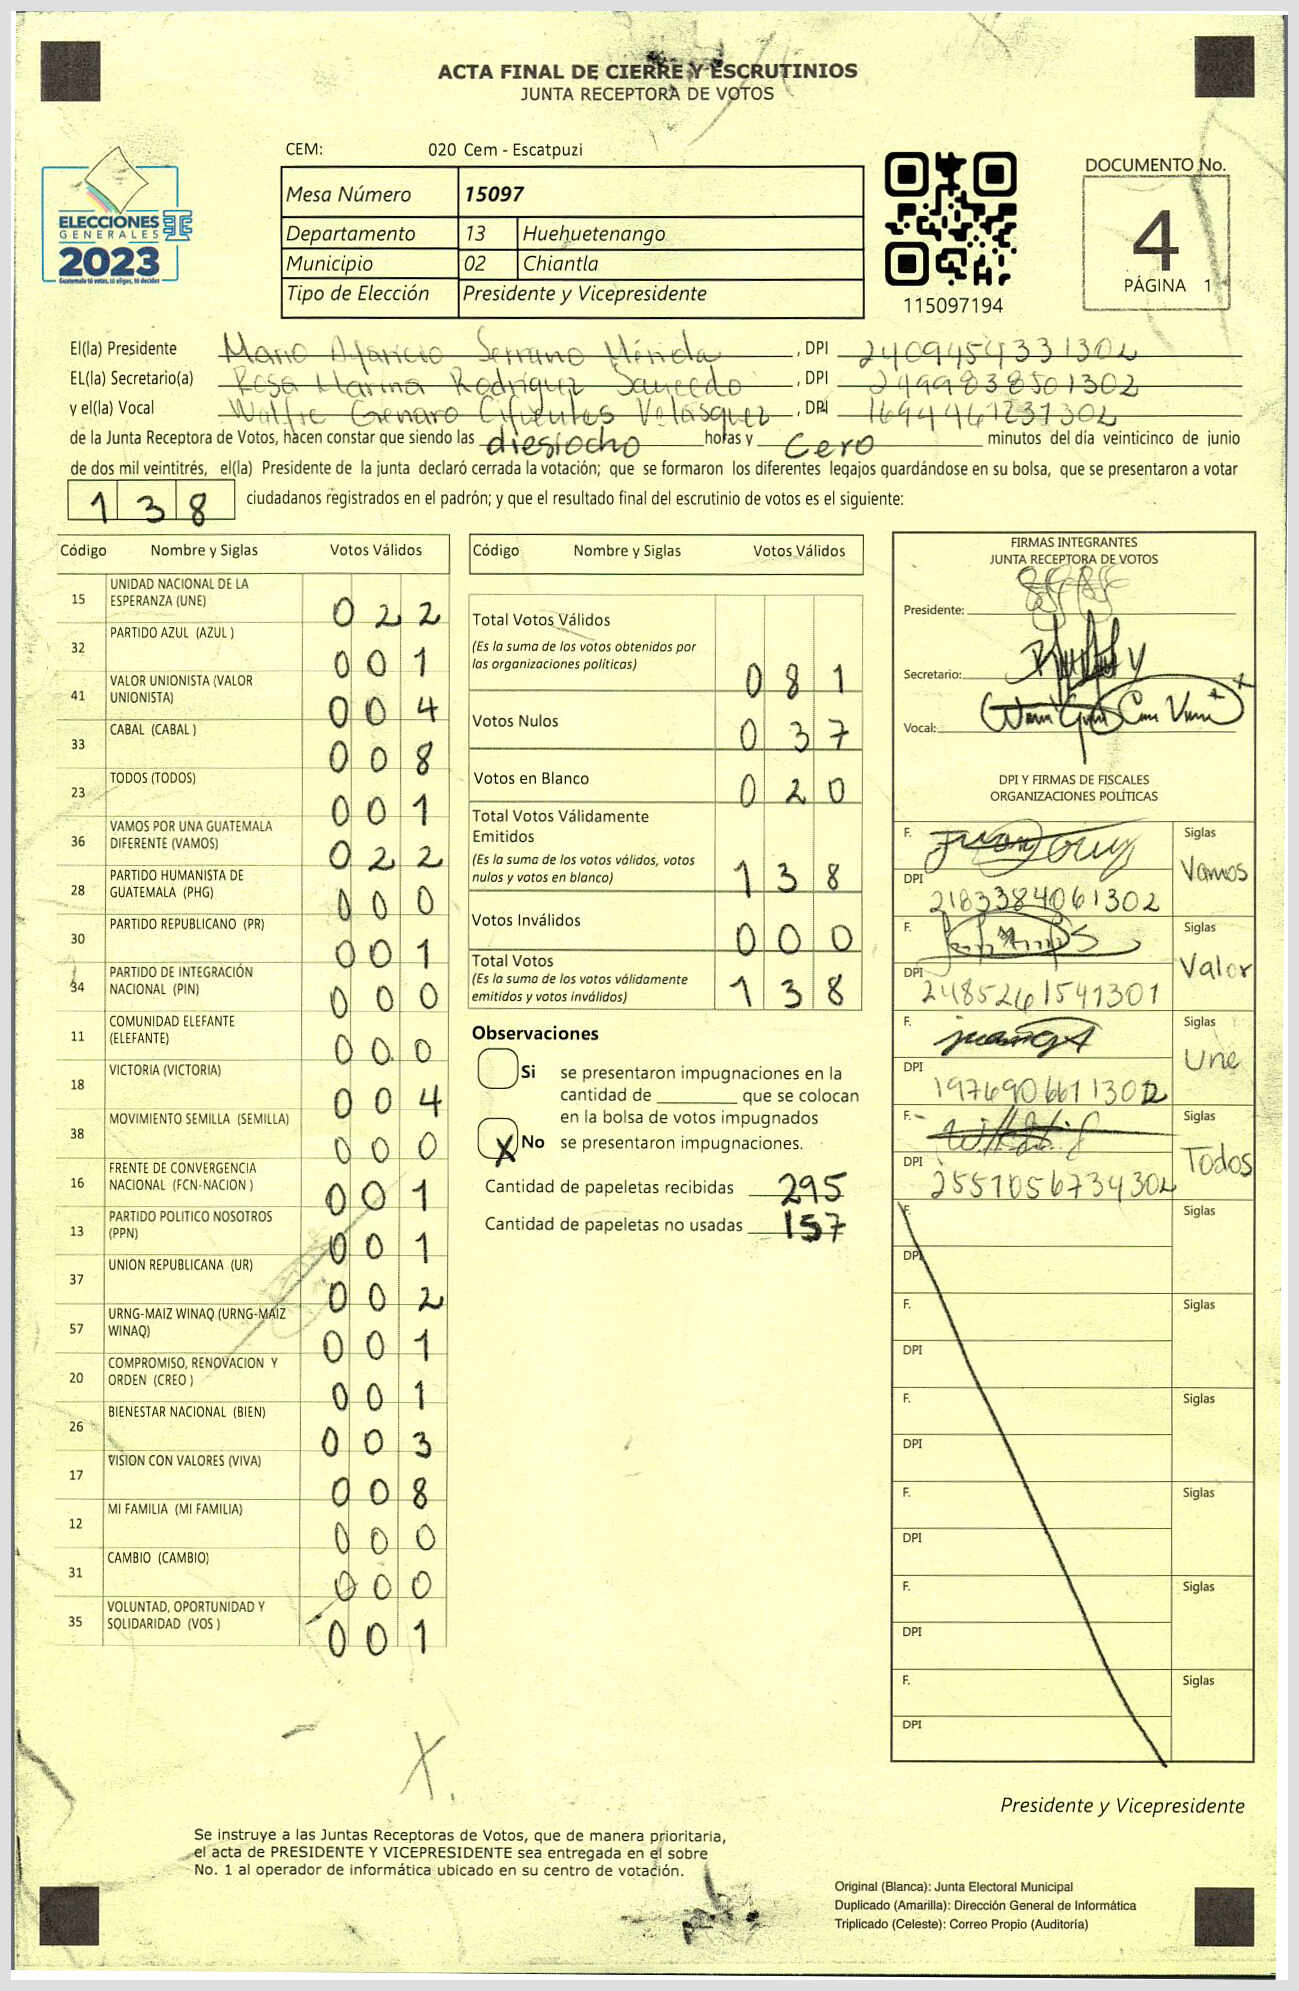 ACTA FINAL DE CIERRE Y ESCRUTINIOS
JUNTA RECEPTORA DE VOTOS
CEM: 020 Cem - Escatpuzi
Mesa Número 15097
Departamento 13 Huehuetenango
Municipio 02 Chiantla
Tipo de Elección Presidente y Vicepresidente
ELECCIONES
GENERALES
2023
Guatemala tú votas, tú eliges, tú decides
115097194
DOCUMENTO No.
4
PÁGINA 1
El(la) Presidente Mario Aparicio Serrano Mérida, DPI 2409454331302
EL(la) Secretario(a) Rosa Marina Rodríguez Saucedo, DPI 2499838501302
y el(la) Vocal Walfre Genaro Cifuentes Velásquez, DPI 1694461231302
de la Junta Receptora de Votos, hacen constar que siendo las diesiocho horas y Cero minutos del día veinticinco de junio
de dos mil veintitrés, el(la) Presidente de la junta declaró cerrada la votación; que se formaron los diferentes legajos quardándose en su bolsa, que se presentaron a votar
138 ciudadanos registrados en el padrón; y que el resultado final del escrutinio de votos es el siguiente:
Código Nombre y Siglas Votos Válidos
15 UNIDAD NACIONAL DE LA ESPERANZA (UNE) 022
32 PARTIDO AZUL (AZUL ) 001
41 VALOR UNIONISTA (VALOR UNIONISTA) 004
33 CABAL (CABAL ) 008
23 TODOS (TODOS) 001
36 VAMOS POR UNA GUATEMALA DIFERENTE (VAMOS) 022
28 PARTIDO HUMANISTA DE GUATEMALA (PHG) 000
30 PARTIDO REPUBLICANO (PR) 001
34 PARTIDO DE INTEGRACIÓN NACIONAL (PIN) 000
11 COMUNIDAD ELEFANTE (ELEFANTE) 000
18 VICTORIA (VICTORIA) 004
38 MOVIMIENTO SEMILLA (SEMILLA) 000
16 FRENTE DE CONVERGENCIA NACIONAL (FCN-NACION ) 001
13 PARTIDO POLITICO NOSOTROS (PPN) 001
37 UNION REPUBLICANA (UR) 002
57 URNG-MAIZ WINAQ (URNG-MAIZ WINAQ) 001
20 COMPROMISO, RENOVACION Y ORDEN (CREO ) 001
26 BIENESTAR NACIONAL (BIEN) 003
17 VISION CON VALORES (VIVA) 008
12 MI FAMILIA (MI FAMILIA) 000
31 CAMBIO (CAMBIO) 000
35 VOLUNTAD, OPORTUNIDAD Y SOLIDARIDAD (VOS ) 001
Código Nombre y Siglas Votos Válidos
Total Votos Válidos 081
(Es la suma de los votos obtenidos por
las organizaciones políticas)
Votos Nulos 037
Votos en Blanco 020
Total Votos Válidamente
Emitidos 138
(Es la suma de los votos válidos, votos
nulos y votos en blanco)
Votos Inválidos 000
Total Votos 138
(Es la suma de los votos válidamente
emitidos y votos inválidos)
Observaciones
Si se presentaron impugnaciones en la
cantidad de ________ que se colocan
en la bolsa de votos impugnados
X No se presentaron impugnaciones.
Cantidad de papeletas recibidas 295
Cantidad de papeletas no usadas 157
FIRMAS INTEGRANTES
JUNTA RECEPTORA DE VOTOS
Presidente:
Secretario:
Vocal:
DPI Y FIRMAS DE FISCALES
ORGANIZACIONES POLÍTICAS
F. Siglas Vamos
DPI 2183384061302
F. Siglas Valor
DPI 2485261541301
F. Siglas Une
DPI 1976906611302
F. Siglas Todos
DPI 2551056734302
F. Siglas
DPI
F. Siglas
DPI
F. Siglas
DPI
F. Siglas
DPI
F. Siglas
DPI
F. Siglas
DPI
Presidente y Vicepresidente
X
Se instruye a las Juntas Receptoras de Votos, que de manera prioritaria,
el acta de PRESIDENTE Y VICEPRESIDENTE sea entregada en el sobre
No. 1 al operador de informática ubicado en su centro de votación.
Original (Blanca): Junta Electoral Municipal
Duplicado (Amarilla): Dirección General de Informática
Triplicado (Celeste): Correo Propio (Auditoría)